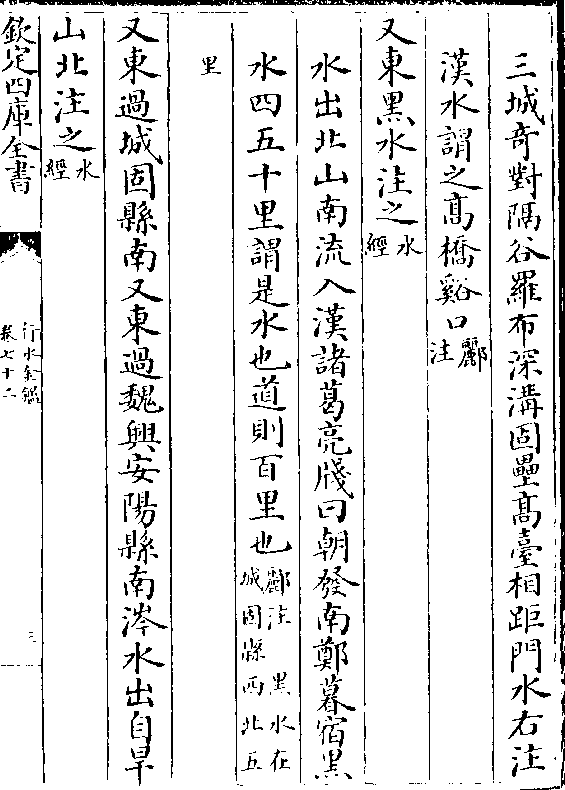 三城奇對隔谷羅布深溝固壘髙臺相距門水右注
漢水謂之髙橋谿口酈注
又東黑水注之水經
水出北山南流入漢諸葛亮牋曰朝發南鄭暮宿黑
水四五十里謂是水也道則百里也酈注 黑水在城固縣西北五
里
又東過城固縣南又東過魏興安陽縣南涔水出自旱
山北注之水經
欽定四庫全書
行水金鑑
卷七十二
三